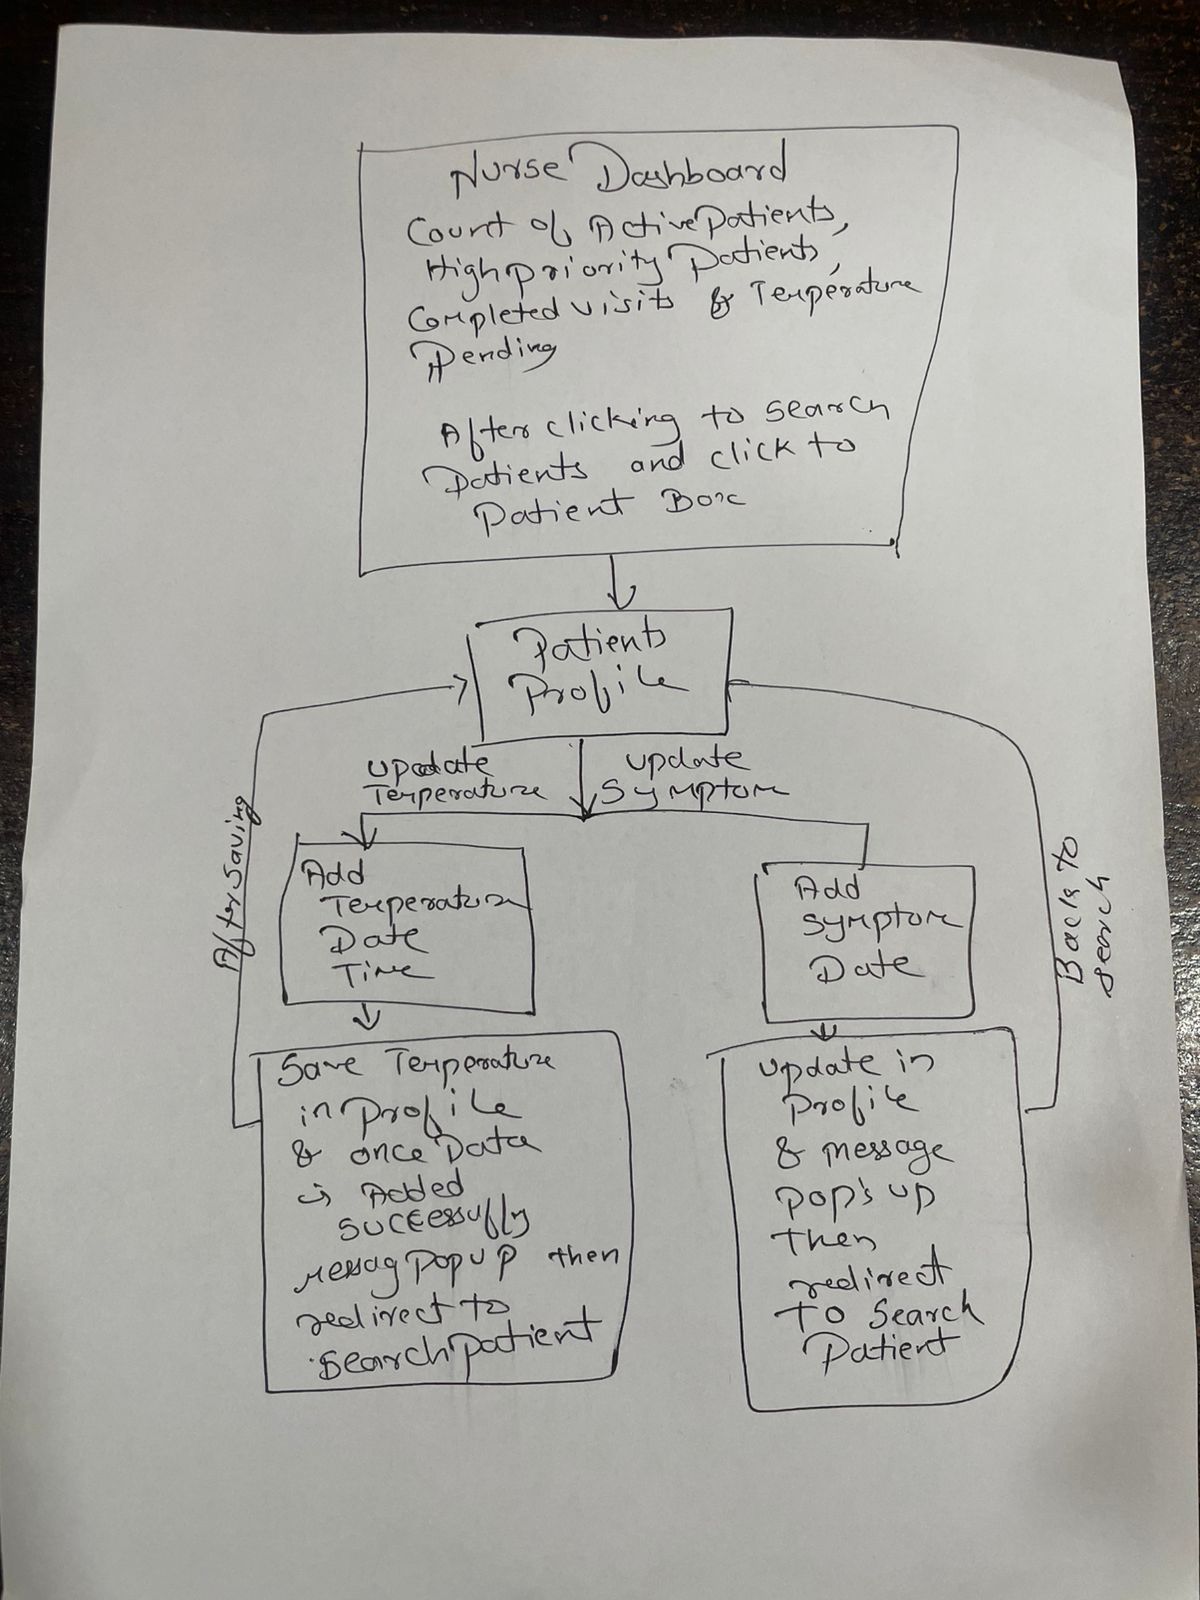 Nurse Dashboard
Count of Active Patients,
High priority Patients,
Completed visits & Temperature
Pending
After clicking to search
Patients and click to
Patient Box
Patients
Profile
update
Temperature
update
Symptom
After Saving
Back to
search
Add
Temperature
Date
Time
Add
Symptom
Date
Save Temperature
in Profile
& once Data
is Added
successuflly
messag popup then
redirect to
search patient
update in
Profile
& message
pop's up
then
redirect
To Search
Patient